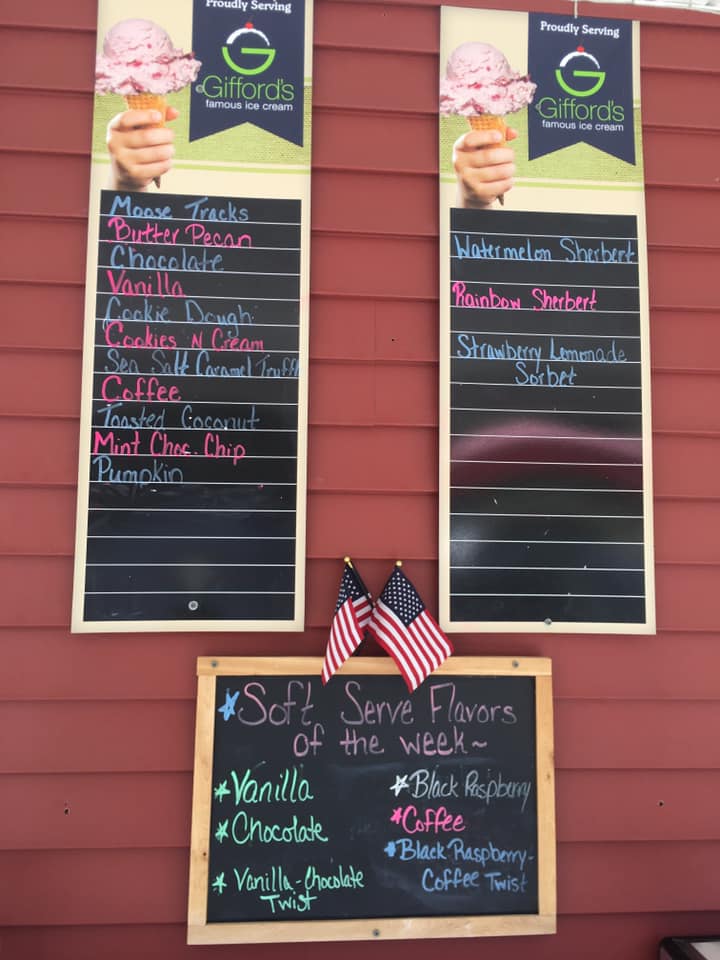 Proudly Serving
Gifford's
famous ice cream
Moose Tracks
Butter Pecan
Chocolate
Vanilla
Cookie Dough
Cookies N Cream
Sea Salt Caramel Truffl
Coffee
Toasted Coconut
Mint Choc. Chip
Pumpkin
Proudly Serving
Gifford's
famous ice cream
Watermelon Sherbert
Rainbow Sherbert
Strawberry Lemonade
Sorbet
Soft Serve Flavors
of the week~
Vanilla
Chocolate
Vanilla-Chocolate
Twist
Black Raspberry
Coffee
Black Raspberry-
Coffee Twist